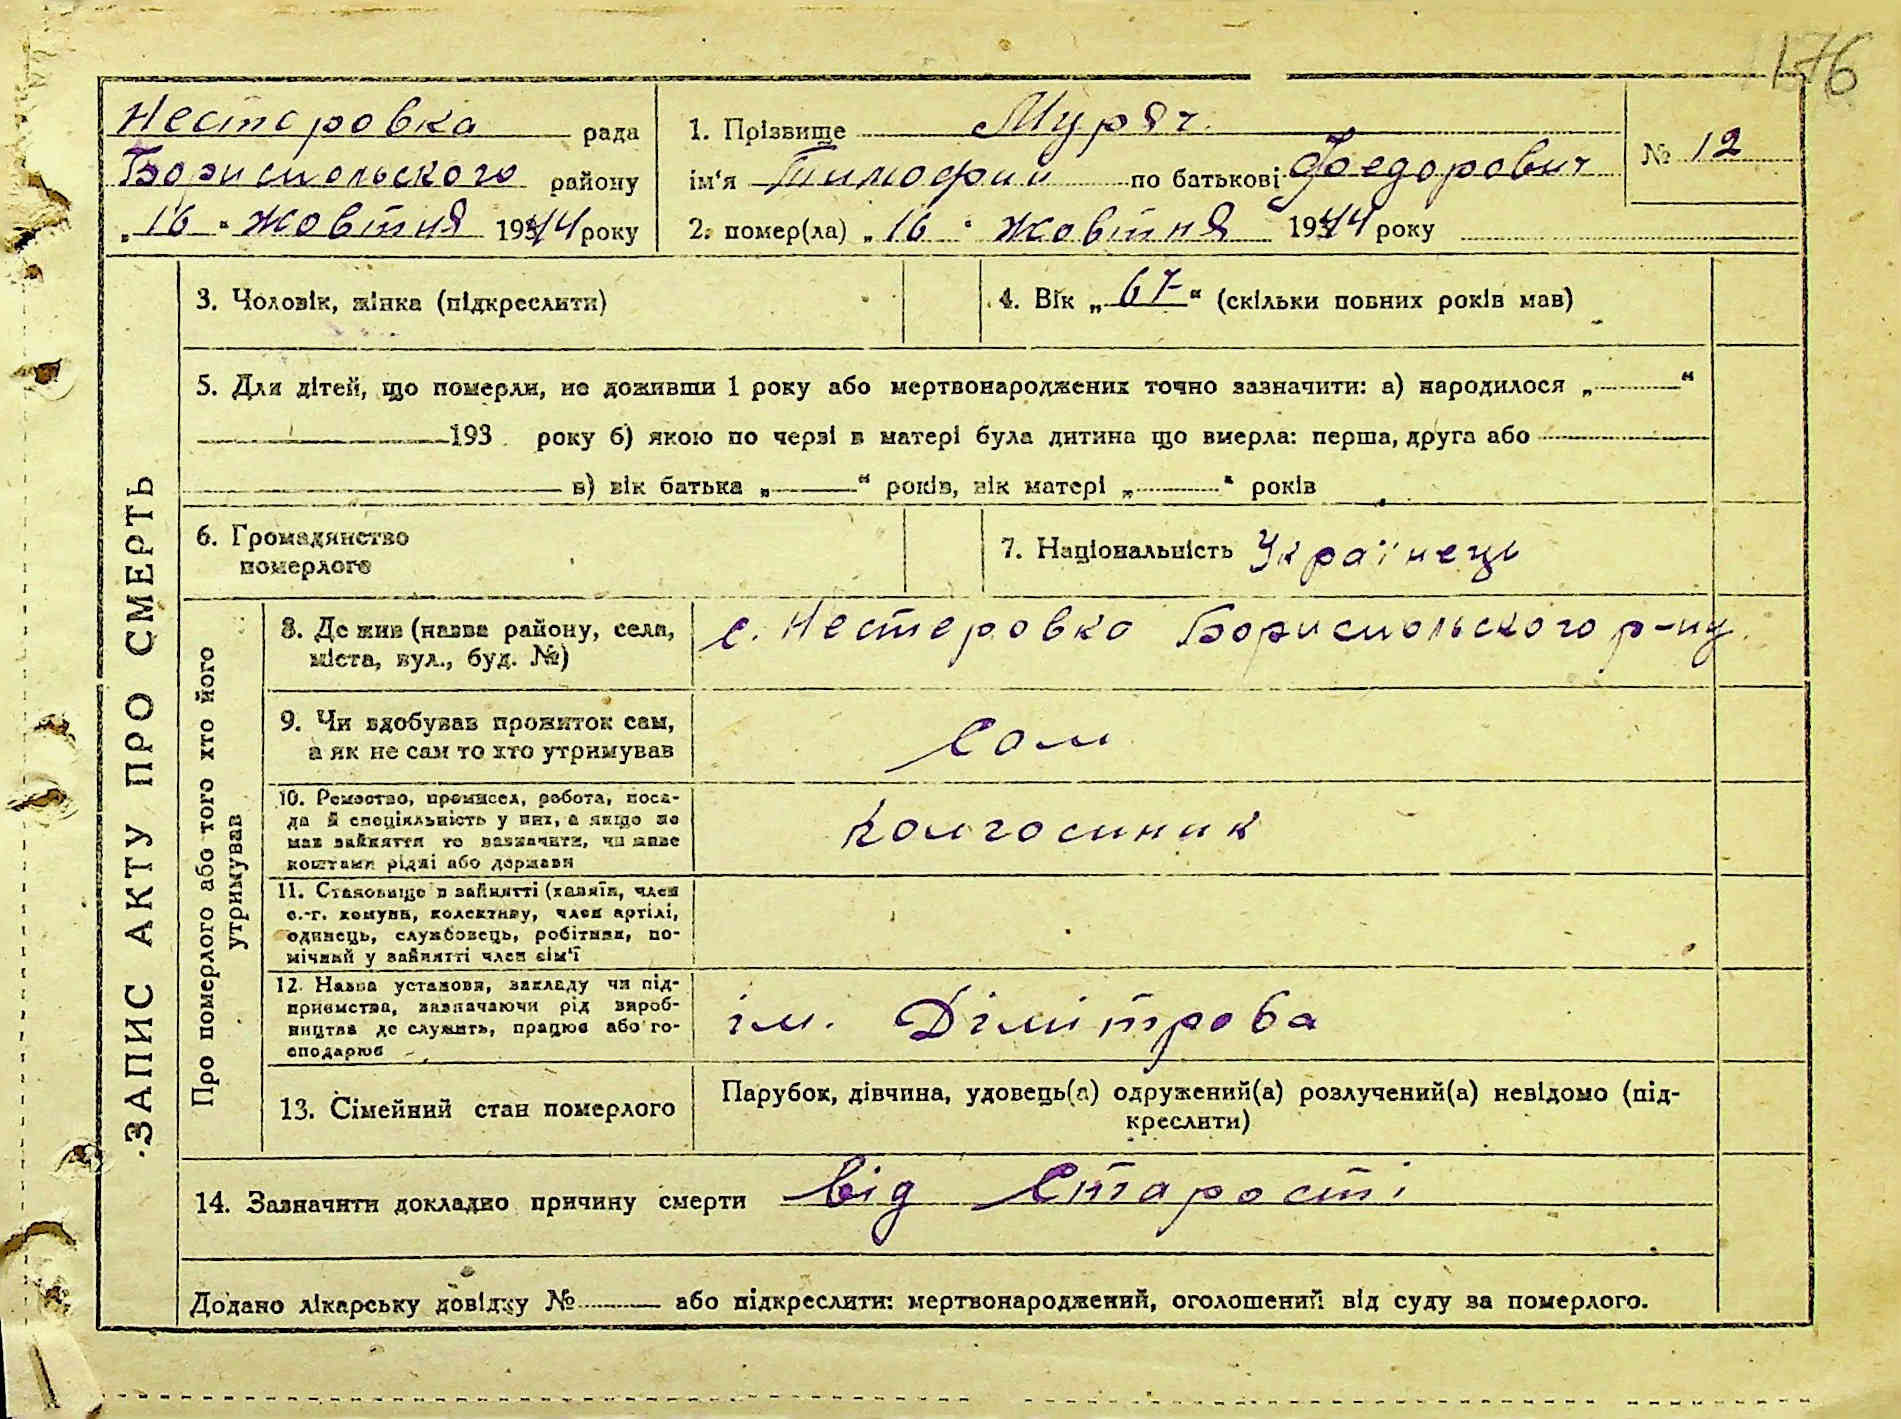 176
Нестеровка рада
Бориспольского району
„16“ жовтня 1944 року
1. Прізвище Муряч
ім‘я Тимофий по батькові Фоедорович
№ 12
2. помер(ла) „16“ жовтня 1944 року
ЗАПИС АКТУ ПРО СМЕРТЬ
3. Чоловік, жінка (підкреслити)
4. Вік „67“ (скільки повних років мав)
5. Для дітей, що померли, не доживши 1 року або мертвонароджених точно зазначити: а) народилося „ “
193 року б) якою по черзі в матері була дитина що вмерла: перша, друга або
в) вік батька „ “ років, вік матері „ “ років
6. Громадянство
померлого
7. Національність Українець
Про померлого або того хто його
утримував
8. Де жив (назва району, села,
міста, вул., буд. №)
с. Нестеровка Бориспольского р-ну.
9. Чи здобував прожиток сам,
а як не сам то хто утримував
Сам
10. Ремество, промисел, робота, поса-
да й спеціяльність у них, а якщо не
мав зайняття то зазначити, чи живе
коштами рідні або держави
колгоспник
11. Становище в зайнятті (хазяїн, член
с.-г. комуни, колективу, член артілі,
одинець, службовець, робітник, по-
мічний у зайнятті член сім‘ї
12. Назва установи, закладу чи під-
приємства, зазначаючи рід вироб-
ництва де служить, працює або го-
сподарює
ім. Дімітрова
13. Сімейний стан померлого
Парубок, дівчина, удовець(а) одружений(а) розлучений(а) невідомо (під-
креслити)
14. Зазначити докладно причину смерти від Старості
Додано лікарську довідку № або підкреслити: мертвонароджений, оголошений від суду за померлого.